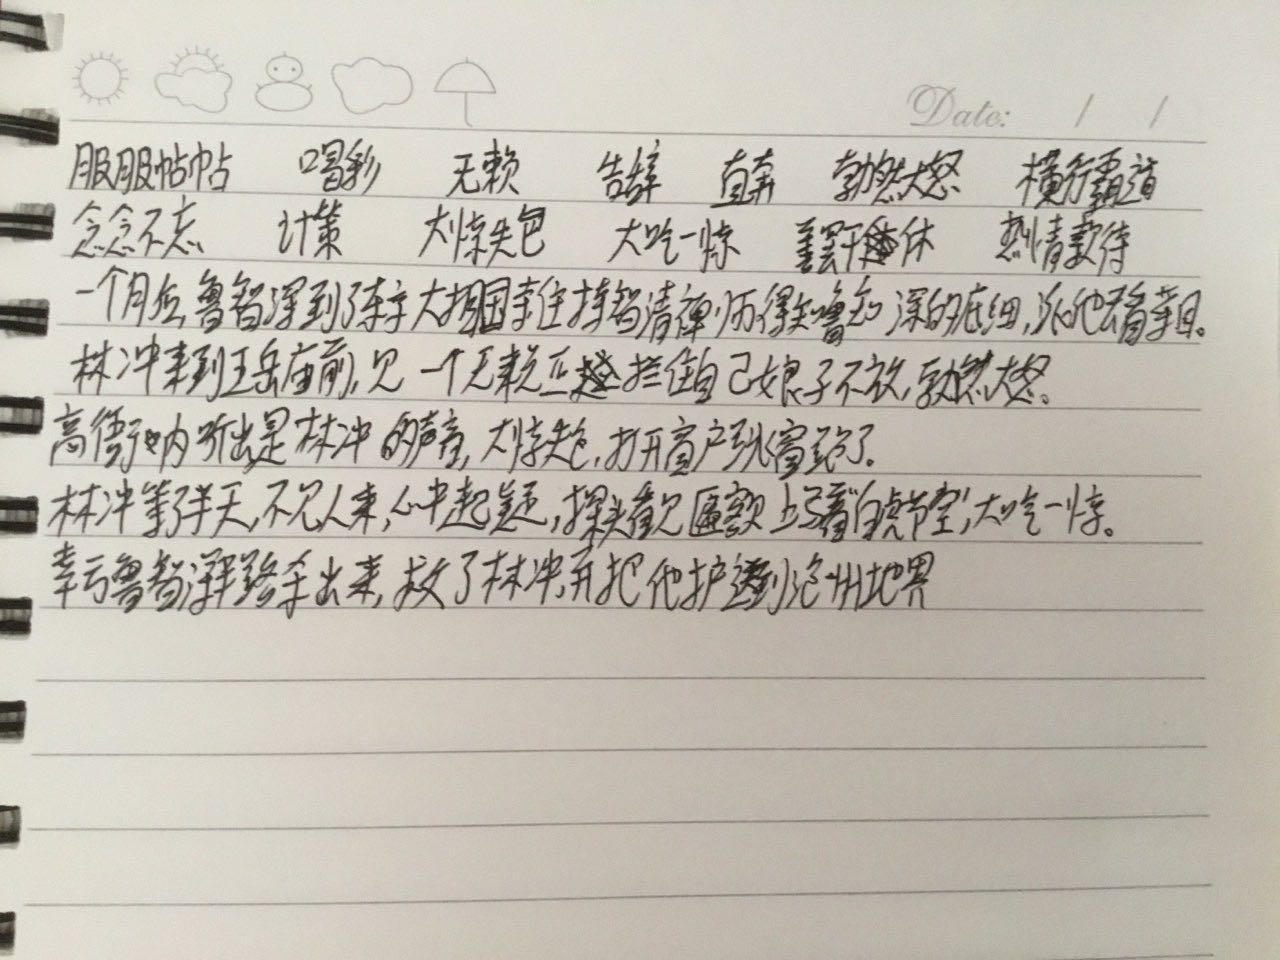 Date: / /
服服帖帖 喝彩 无赖 告辞 直奔 勃然大怒 横行霸道
念念不忘 计策 大惊失色 大吃一惊 善罢干休 热情款待
一个月后,鲁智深到了东京大相国寺,住持智清禅师得知鲁智深的底细,派他去看菜园。
林冲来到五岳庙前,见一个无赖正拦住自己娘子不放,勃然大怒。
高衙内听出是林冲的声音,大惊失色,打开窗户跳窗跑了。
林冲等了半天,不见人来,心中起疑,探头看见匾额上写着“白虎节堂”,大吃一惊。
幸亏鲁智深半路杀出来,救了林冲,并把他护送到沧州地界